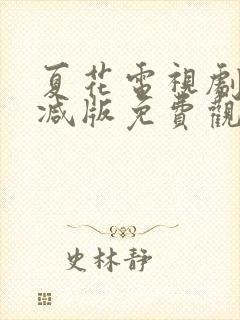 夏花電視劇
減版免費觀
史林靜